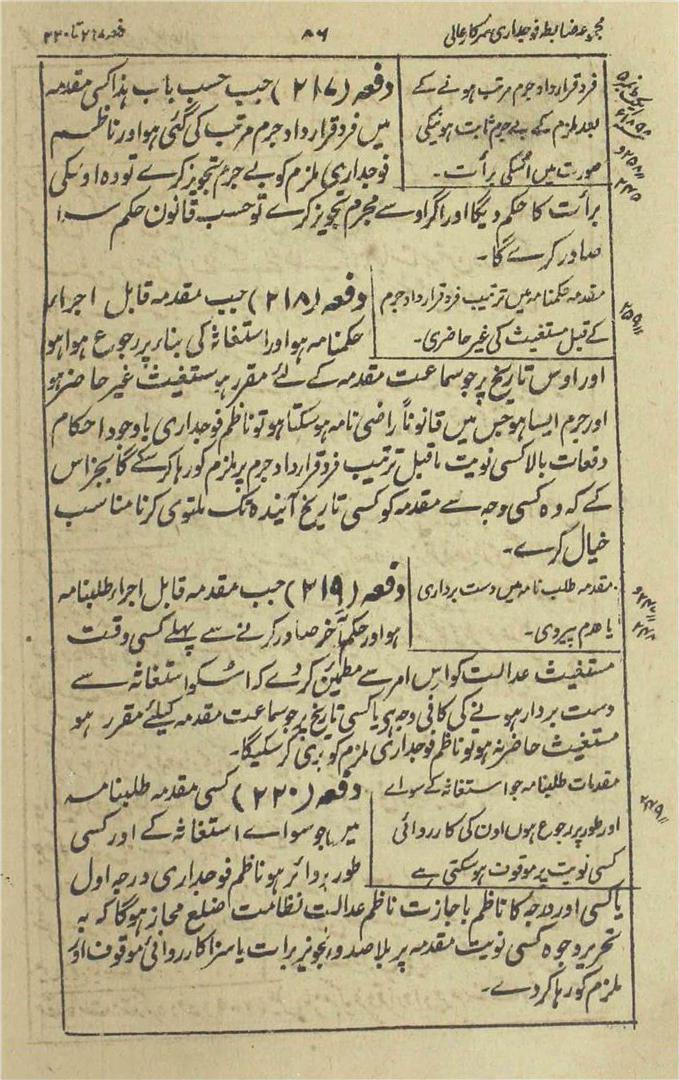 مجموعہ ضابطہ فوجداری سرکار عالی
۸۶
دفعہ ۲۱۷ تا ۲۲۰
فرد قرارداد جرم مرتب ہونے کے
بعد ملزم کے بے جرم ثابت ہونیکی
صورت میں اُسکی برأت ۔
دفعہ (۲۱۷) جب حسب باب ہذا کسی مقدمہ
میں فرد قرارداد جرم مرتب کی گئی ہو اور ناظم
فوجداری ملزم کو بے جرم تجویز کرے تو وہ اوسکی
برأت کا حکم دیگا اور اگر اوسے مجرم تجویز کرے تو حسب قانون حکم سزا
صادر کرے گا ۔
مقدمہ حکمنامہ میں ترتیب فرد قرارداد جرم
کے قبل مستغیث کی غیر حاضری ۔
دفعہ (۲۱۸) جب مقدمہ قابل اجراء
حکمنامہ ہو اور استغاثہ کی بناء پر رجوع ہوا ہو
اور اوس تاریخ پر جو سماعت مقدمہ کے لئے مقرر ہو مستغیث غیر حاضر ہو
اور جرم ایسا ہو جس میں قانوناً راضی نامہ ہوسکتا ہو تو ناظم فوجداری باوجود احکام
دفعات بالا کسی نوبت ماقبل ترتیب فرد قرارداد جرم پر ملزم کو رہا کرسکے گا بجز اس
کے کہ وہ کسی وجہ سے مقدمہ کو کسی تاریخ آیندہ تک ملتوی کرنا مناسب
خیال کرے ۔
مقدمہ طلب نامہ میں دست برداری
یا عدم پیروی ۔
دفعہ (۲۱۹) جب مقدمہ قابل اجراء طلبنامہ
ہو اور حکم آخر صادر کرنے سے پہلے کسی وقت
مستغیث عدالت کو اس امر سے مطمئن کردے کہ اسکو استغاثہ سے
دست بردار ہونے کی کافی وجہ ہی یا کسی تاریخ پر جو سماعت مقدمہ کیلئے مقرر ہو
مستغیث حاضر نہ ہو تو ناظم فوجداری ملزم کو بری کرسکیگا ۔
مقدمات طلبنامہ جو استغاثہ کے سوائے
اور طور پر رجوع ہوں اون کی کارروائی
کسی نوبت پر موقوف ہوسکتی ہے
دفعہ (۲۲۰) کسی مقدمہ طلبنامہ
میں جو سوائے استغاثہ کے اور کسی
طور پر دائر ہو ناظم فوجداری درجہ اول
یا کسی اور درجہ کا ناظم باجازت ناظم عدالت نظامت ضلع مجاز ہوگا کہ بہ
تحریر وجوہ کسی نوبت مقدمہ پر بلا صدور تجویز برات یا سزا کارروائی موقوف اور
ملزم کو رہا کردے ۔